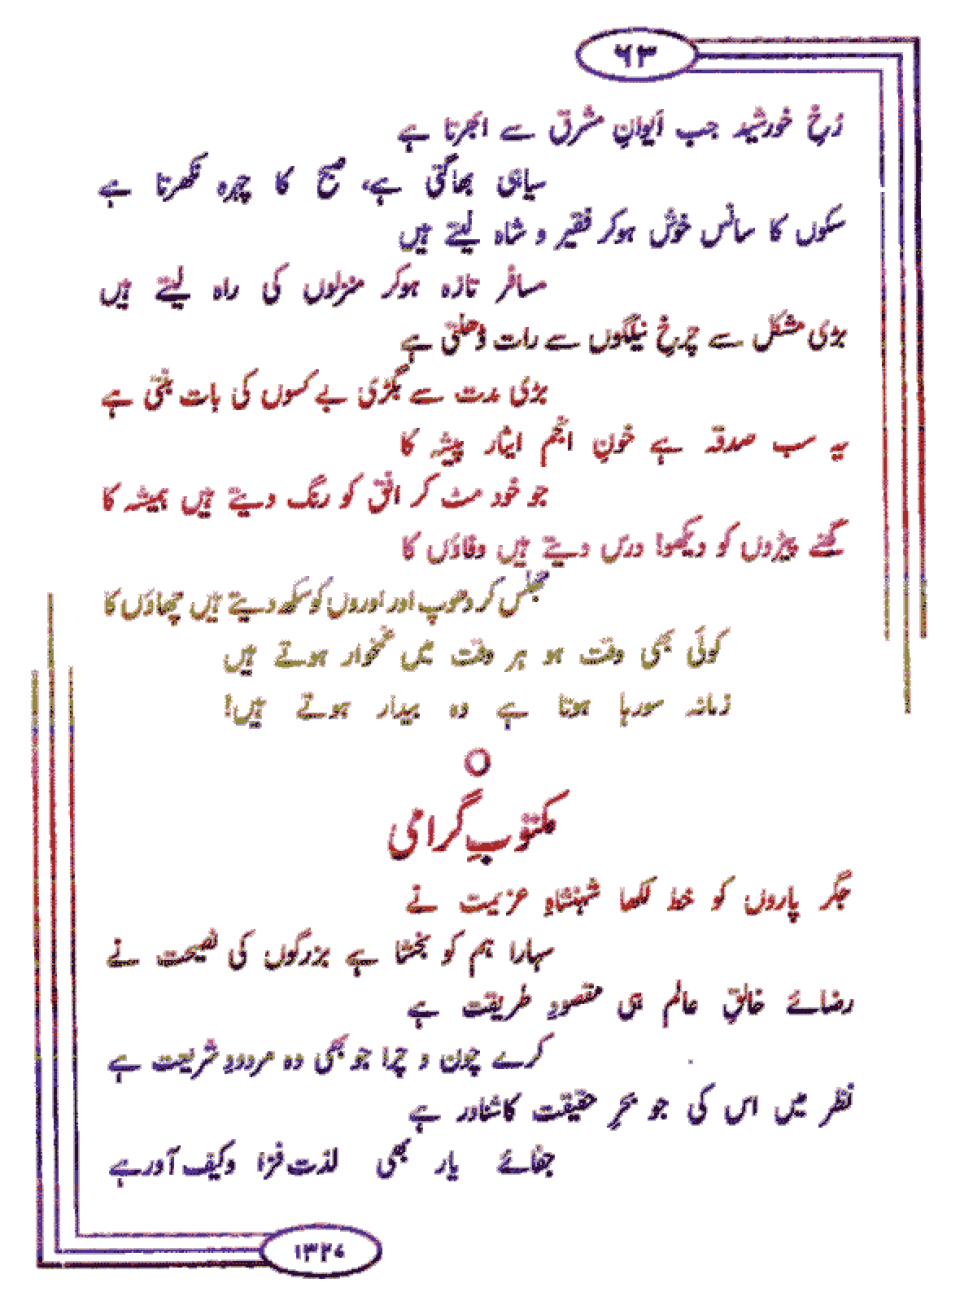 ۶۳
رُخِ خورشید جب ایوانِ مشرق سے ابھرتا ہے
سیاہی بھاگتی ہے، صبح کا چہرہ نکھرتا ہے
سکوں کا سانس خوش ہوکر فقیر و شاہ لیتے ہیں
مسافر تازہ ہوکر منزلوں کی راہ لیتے ہیں
بڑی مشکل سے چرخِ نیلگوں سے رات ڈھلتی ہے
بڑی مدت سے بگڑی بے کسوں کی بات بنتی ہے
یہ سب صدقہ ہے خونِ انجم ایثار پیشہ کا
جو خود مٹ کر افق کو رنگ دیتے ہیں ہمیشہ کا
گھنے پیڑوں کو دیکھو! درس دیتے ہیں وفاؤں کا
جھلس کر دھوپ اور اوروں کو سکھ دیتے ہیں چھاؤں کا
کوئی بھی وقت ہو ہر وقت میں غمخوار ہوتے ہیں
زمانہ سورہا ہوتا ہے وہ بیدار ہوتے ہیں!
مکتوبِ گرامی
جگر پاروں کو خط لکھا شہنشاہِ عزیمت نے
سہارا ہم کو بخشا ہے بزرگوں کی نصیحت نے
رضائے خالقِ عالم ہی مقصودِ طریقت ہے
کرے چون و چرا جو بھی وہ مردودِ شریعت ہے
نظر میں اس کی جو بحرِ حقیقت کا شناور ہے
جفائے یار بھی لذت فزا وکیف آور ہے
۱۳۲۷